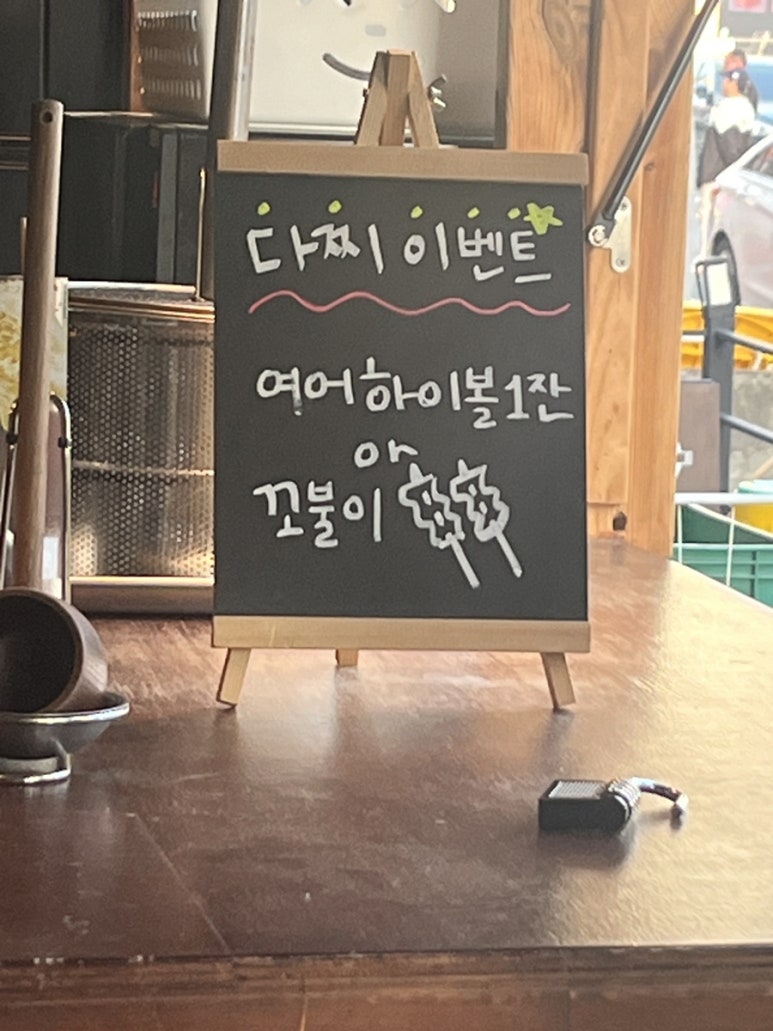 다찌 이벤트
여어하이볼 1잔
or
꼬불이